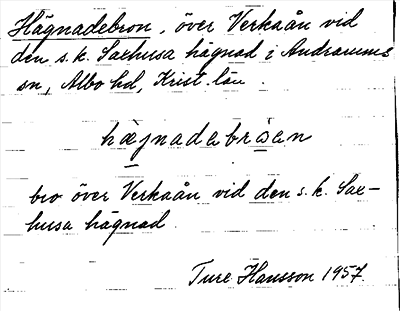 Hägnadebron, över Verkaån vid
den s.k. Saxhusa hägnad i Andrarums
sn, Albo hd, Krist. län.
hægnadebrɷen
bro över Verkaån vid den s.k. Sax-
husa hägnad.
Ture Hansson 1957.